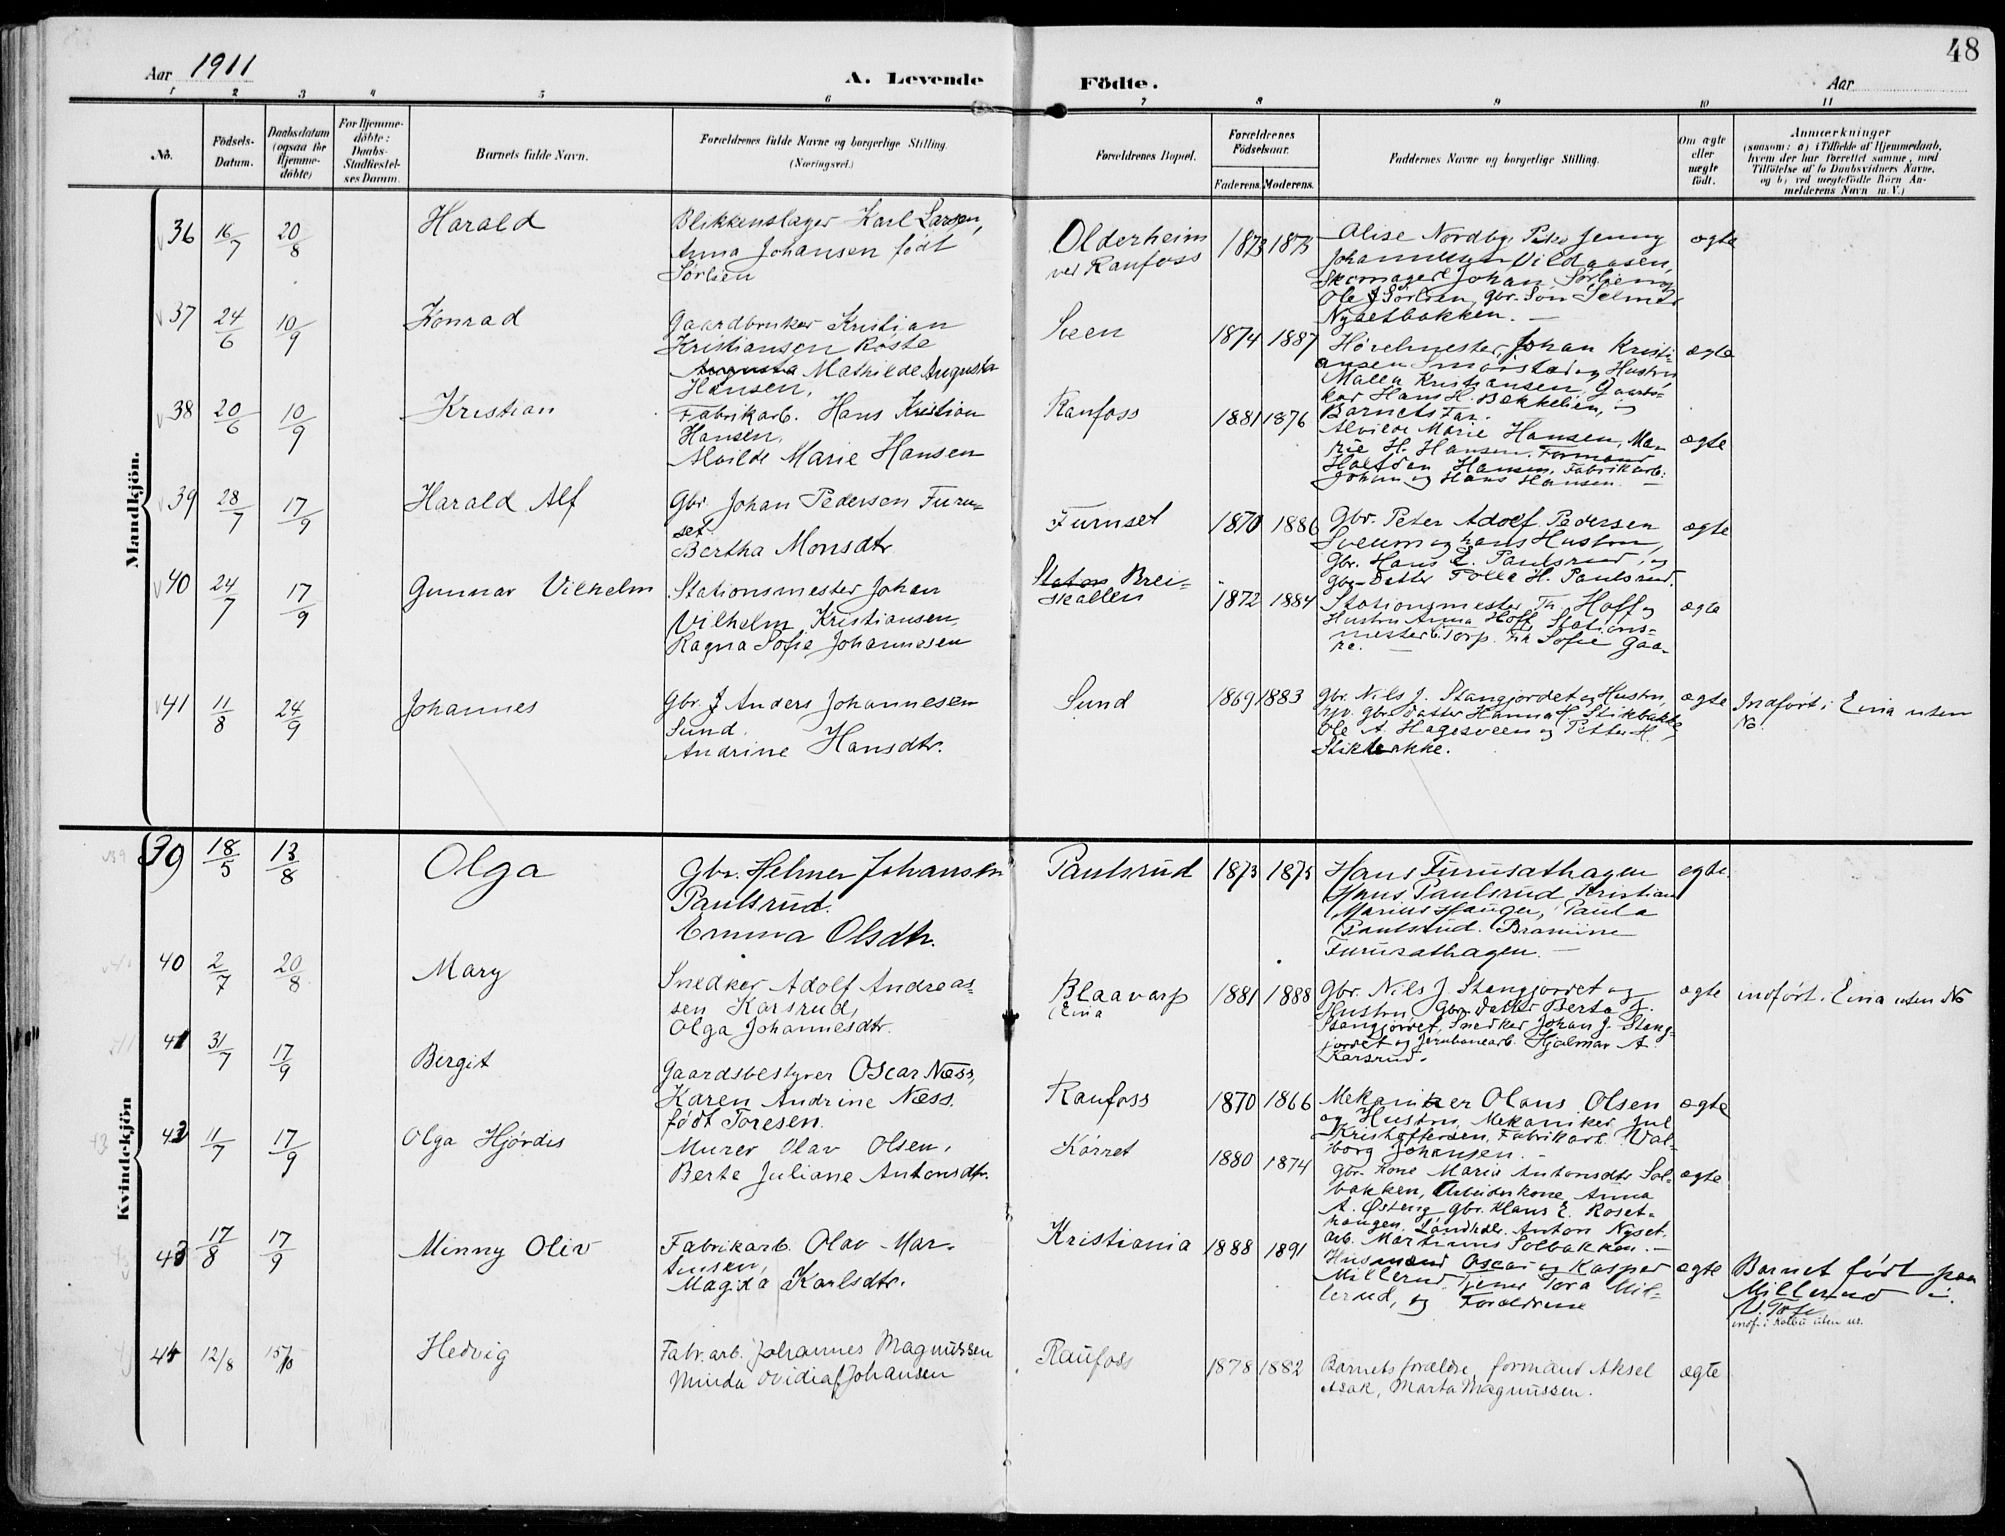 48
Aar 1911
A. Levende Födte.
Aar
1 2 3 4 5 6 7 8 9 10 11
No.
Födsels-Datum.
Daabsdatum (ogsaa for Hjemme-döbte)
For Hjemme-döbte: Daabs-Stadfæstel-ses Datum.
Barnets fulde Navn.
Forældrenes fulde Navne og borgerlige Stilling. (Næringsvei.)
Forældrenes Bopæl.
Forældrenes Födselsaar.
Faderens. Moderens.
Faddernes Navne og borgerlige Stilling.
Om ægte eller uægte födt.
Anmærkninger
(saasom: a) i Tilfælde af Hjemmedaab,
hvem der har forrettet samme, med
Tilföielse af to Daabsvidners Navne,
og b) ved uægtefödte Börn An-
melderens Navn m. V.)
Mandkjön.
36 16/7 20/8 Harald
Blikkenslager Karl Larsen,
Anna Johansen født
Sørlien
Olderheim
ved Raufoss
1873 1875
Alise Nordby, Jenny
Vildaasen,
Skomager Johan Sørlien og
Ole J Sørlien, gbr. Søn Selmer
Nybetbakken. —
ægte
37 24/6 10/9 Konrad
Gaardbruker Kristian
Kristiansen Røste
Augusta Mathilde Augusta
Hansen,
Sveen
1874 1887
Hövelmester Johan Kristi-
ansen Smørstad og Hustru
Malla Kristiansen,
Hans H. Bakkelien, og
Barnets Far.
ægte
38 20/6 10/9 Kristian
Fabrikarb. Hans Kristian
Hansen,
Alvilde Marie Hansen
Raufoss
1881 1876
Alvilde Marie Hansen, Ma-
rie H. Hansen, Formand
Halfdan Hansen, Fabrikarb.
Johan og Hans Hansen. —
ægte
39 28/7 17/9 Harald Alf
Gbr. Johan Pedersen Furu-
set.
Bertha Monsdtr.
Furuset
1870 1886
Gbr. Peter Adolf Pedersen
Sveum og hans Hustru,
Gbr. Hans E. Paulsrud, og
gbr-Datter H. Paulsrud.
ægte
40 24/7 17/9 Gunnar Vilhelm
Stationsmester Johan
Vilhelm Kristiansen,
Ragna Sofie Johannesen
Station Brei-
skallen
1872 1884
Stationsmester Th. Hoff og
Hustru Anna Hoff, Stations-
mester Torp. Frk Sofie Gaa-
re. —
ægte
41 11/8 24/9 Johannes
Gbr. J Anders Johannesen
Sund.
Andrine Hansdtr.
Sund
1869 1883
gbr. Nils J. Stangjordet og Hustru,
gbr. datter Hanna H. Stikbakke,
Ole A. Hagesveen og Petter H.
Stikbakke.
ægte
Indført i Eina uten
No.
Kvindekjön
39 18/5 13/8 Olga
Gbr. Helmer Johansen
Paulsrud.
Emma Olsdtr.
Paulsrud
1873 1875
Hans Furusethagen
Hans Paulsrud Kristian
Marius Hauger, Paula
Paulsrud. Bramine
Furusathagen. —
egte.
40 2/7 20/8 Mary
Snedker Adolf Andreas-
sen Karsrud,
Olga Johannesdtr.
Blaavarp
Eina
1881 1888
Gbr. Nils J. Stangjordet og
Hustru, Gbr. datter Berta J.
Stangjordet, Snedker Johan J. Stang-
jordet og Jernbanearb. Hjalmar A.
Karsrud.
ægte
indført i Eina uten No
41 31/7 17/9 Bergit
Gaardsbestyrer Oscar Næss,
Karen Andrine Næss
født Toresen.
Raufoss
1870 1866
Mekaniker Olaus Olsen
og Hustru, Mekaniker Jul
Kristoffersen, Fabrikarb. Val-
borg Johansen. —
ægte
42 11/7 17/9 Olga Hjördis
Murer Olav Olsen,
Berte Juliane Antonsdtr.
Kørret
1880 1874
Gbr. Kone Marie Antonsdtr Sol-
bakken, Arbeiderkone Anna
A. Østeng gbr. Hans E. Roset-
haugen, Landhdl. Anton Nyset.
arb. Martinus Solbakken. —
ægte
43 17/8 17/9 Minny Oliv
Fabrikarb. Olav Mar-
tinsen,
Magda Karlsdtr.
Kristiania
1888 1891
Husmænd Oscar og Kasper
Millerud, Tjener Tora Mil-
lerud, og Forældrene
ægte
Barnet født paa
Millerud i
V. Toten
indf. i Kolbu uten nr.
44 12/8 15/10 Hedvig
Fabr. arb. Johannes Magnussen
Minda Ovidia f Johansen
Raufoss
1878 1882
Barnets forældre, formand Aksel
Asak, Marta Magnussen.
ægte